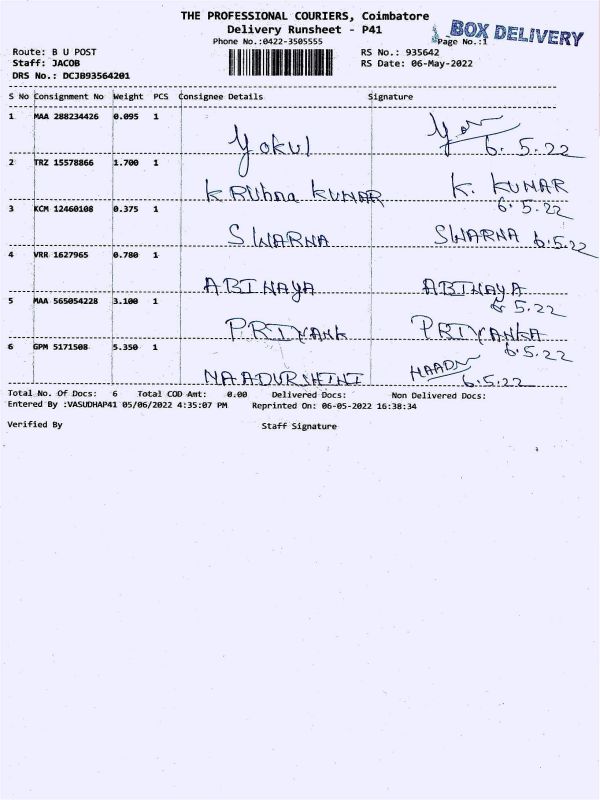 THE PROFESSIONAL COURIERS, Coimbatore
Delivery Runsheet - P41
BOX DELIVERY
Phone No.:0422-3505555
Page No.:1
Route: B U POST
RS No.: 935642
Staff: JACOB
RS Date: 06-May-2022
DRS No.: DCJB93564201
S No Consignment No Weight PCS Consignee Details Signature
1 MAA 288234426 0.095 1
Yokul 6.5.22
2 TRZ 15578866 1.700 1
KRUbna KUNAR K. KUNAR
6.5.22
3 KCM 12460108 0.375 1
SWARNA SWARNA 6.5.22
4 VRR 1627965 0.780 1
ABINAYA ABINAYA
6.5.22
5 MAA 565054228 3.100 1
PRIYANK PRIYANKA
6.5.22
6 GPM 5171508 5.350 1
6.5.22
Total No. Of Docs: 6 Total COD Amt: 0.00 Delivered Docs: Non Delivered Docs:
Entered By :VASUDHAP41 05/06/2022 4:35:07 PM Reprinted On: 06-05-2022 16:38:34
Verified By Staff Signature